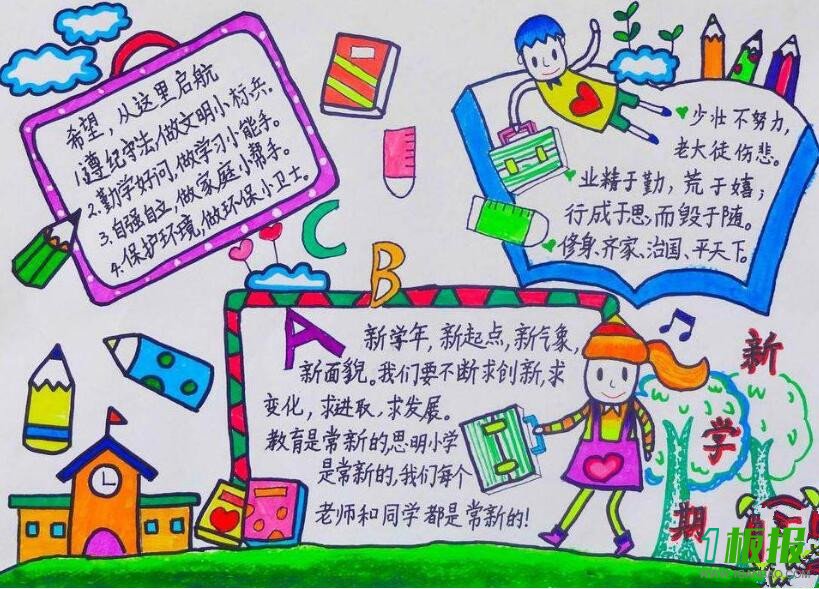 希望，从这里启航
1.遵纪守法，做文明小标兵。
2.勤学好问，做学习小能手。
3.自强自立，做家庭小帮手。
4.保护环境，做环保小卫士。
少壮不努力，
老大徒伤悲。
业精于勤，荒于嬉；
行成于思，而毁于随。
修身、齐家、治国、平天下。
C
B
A
新学年，新起点，新气象，
新面貌。我们要不断求创新，求
变化，求进取，求发展。
教育是常新的，思明小学
是常新的，我们每个
老师和同学都是常新的！
新
学
期
1板报